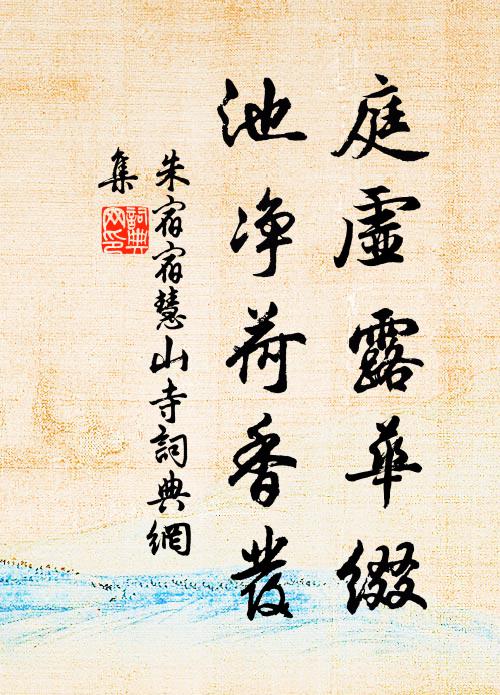 庭虛露華綴
池净荷香發
朱宿宿慧山寺詞典網
集
詞典
网印